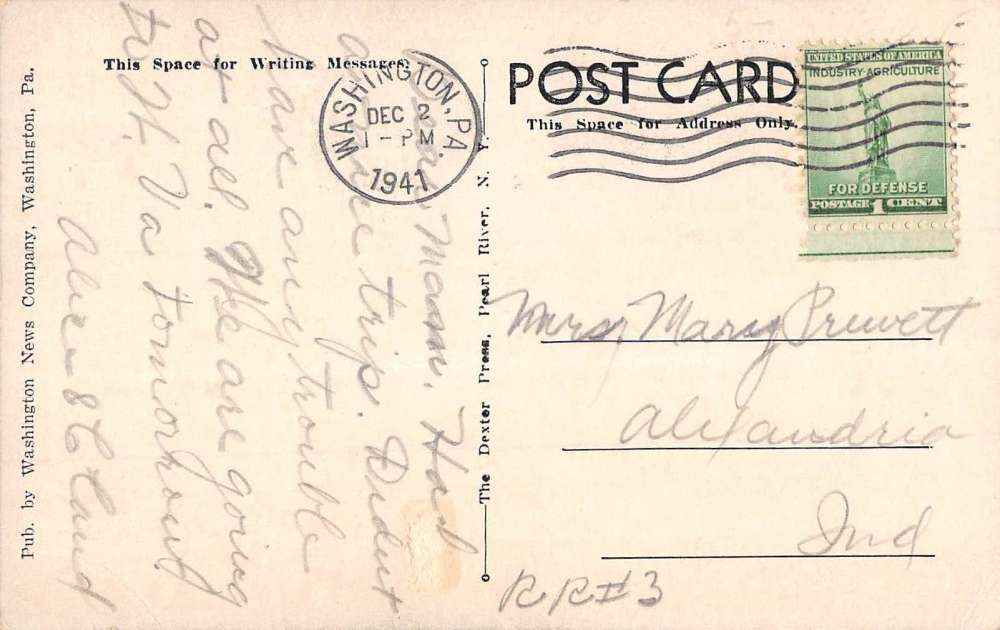 This Space for Writing Messages.
POST CARD
This Space for Address Only.
WASHINGTON, PA
DEC 2
1 - PM
1941
UNITED STATES OF AMERICA
INDUSTRY-AGRICULTURE
FOR DEFENSE
POSTAGE 1 CENT
Dear Mom, Had
a fine trip. Didnt
have any trouble
at all. We are going
to W. Va tomorrow
Alie & Claud
Mrs, Mary Prewett
Alexandria
Ind
RR#3
Pub. by Washington News Company, Washington, Pa.
The Dexter Press, Pearl River, N. Y.